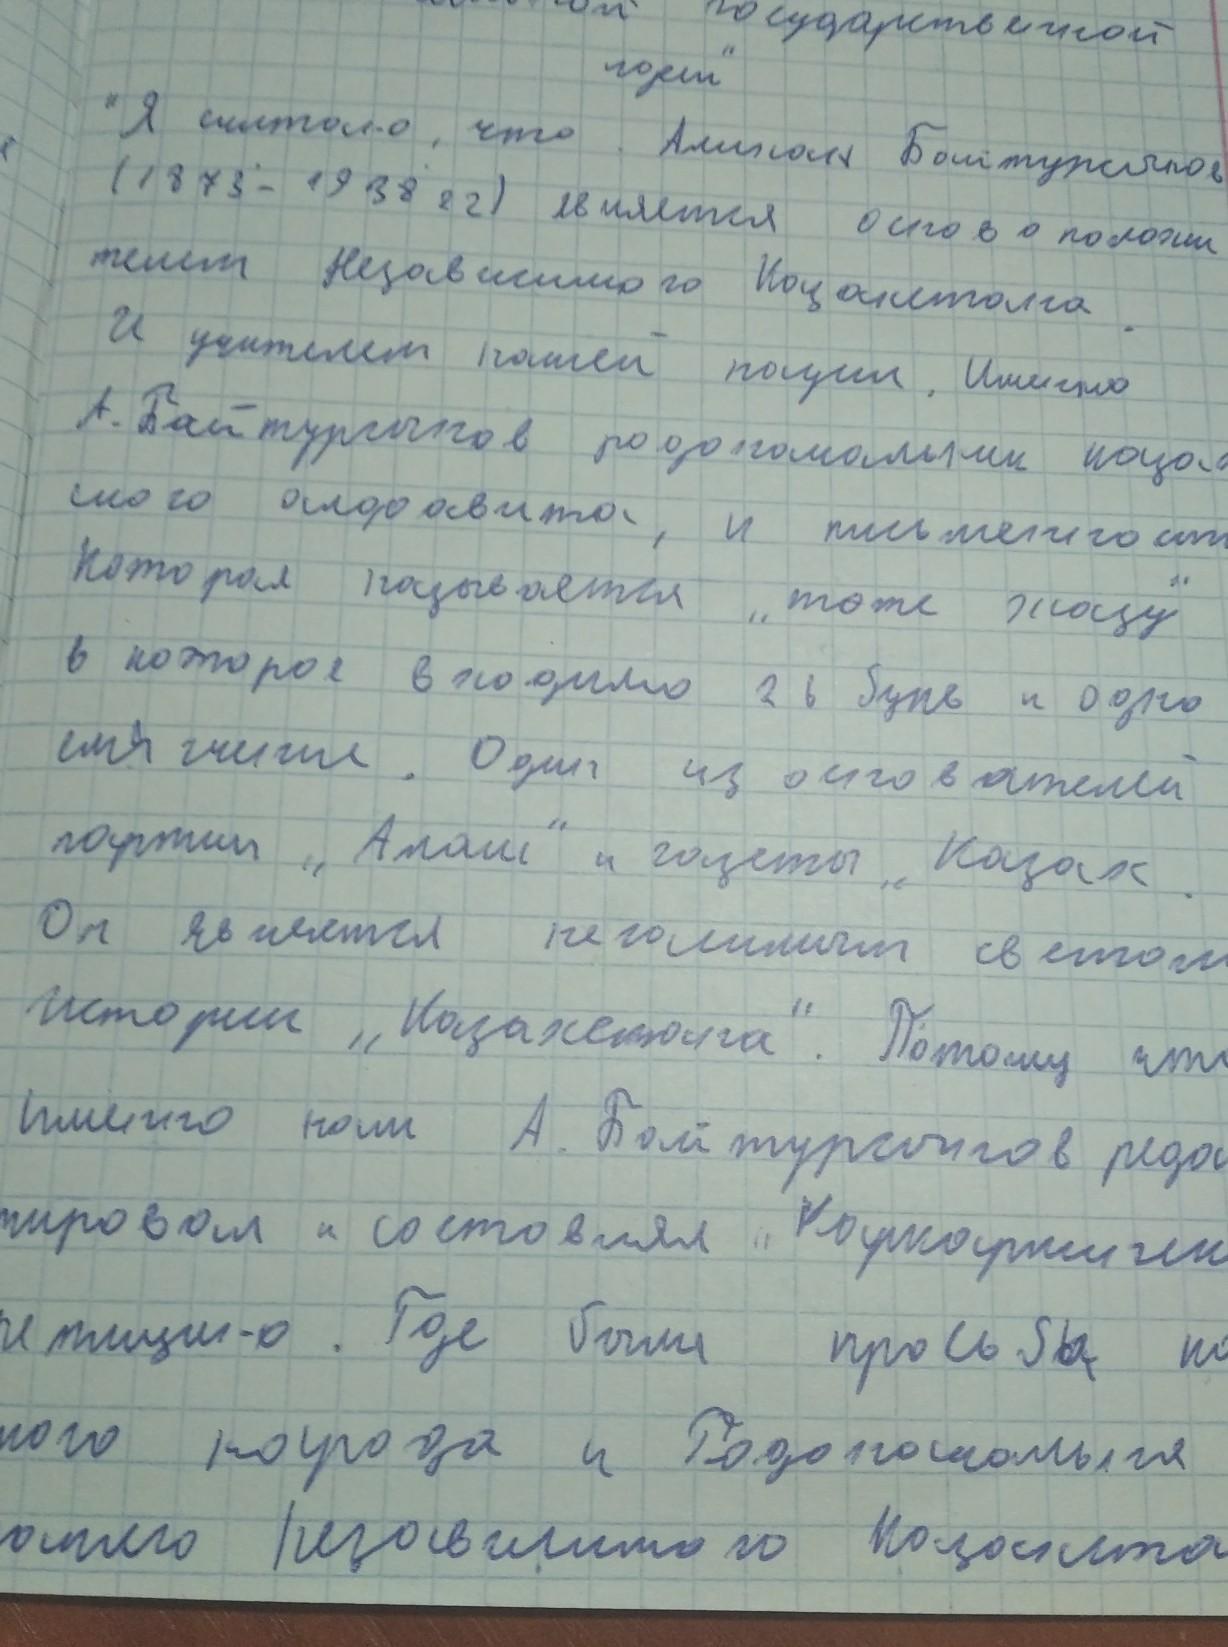 государственной
идеи"
"Я считаю, что Алихан Байтурсынов
(1873-1938 гг) является основоположи
телем Независимого Казахстана.
И учителем нашей нации. Именно
А. Байтурсынов родоначальник казах
ского алфавита, и письменност
Которая называется „тоте жазу"
в которое входило 26 букв и одно
смягчение. Один из основателей
партии „Алаш" и газеты „Казах.
Он является светом
истории „Казахстана". Потому что
именно нам А. Байтурсынов реда
тировал и составлял „Каркаралинск
петицию. Где была просьба
ного народа и Родоначальния
нашего Независимого Казахста